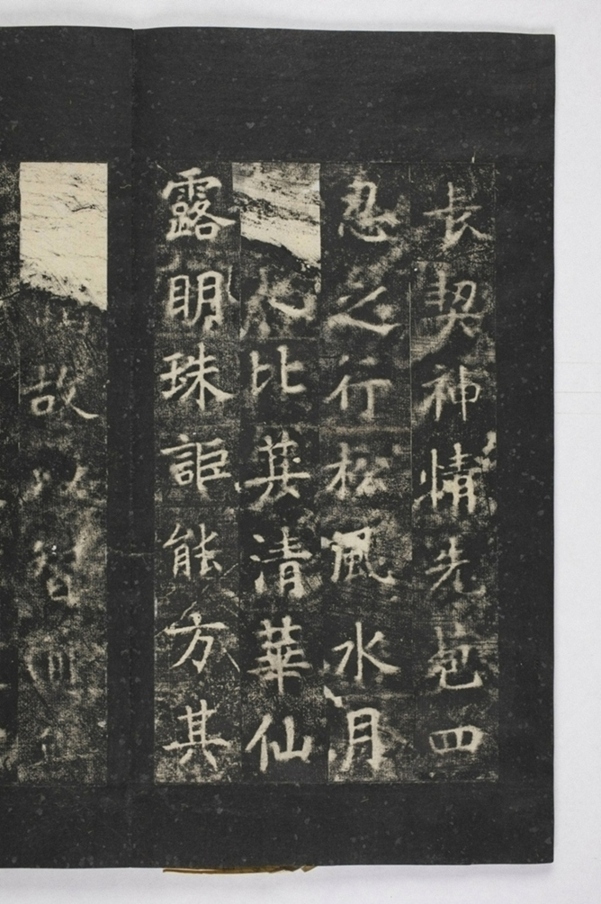 長契神情先苞四
忍之行松風水月
比其清華仙
露明珠詎能方其
故以智